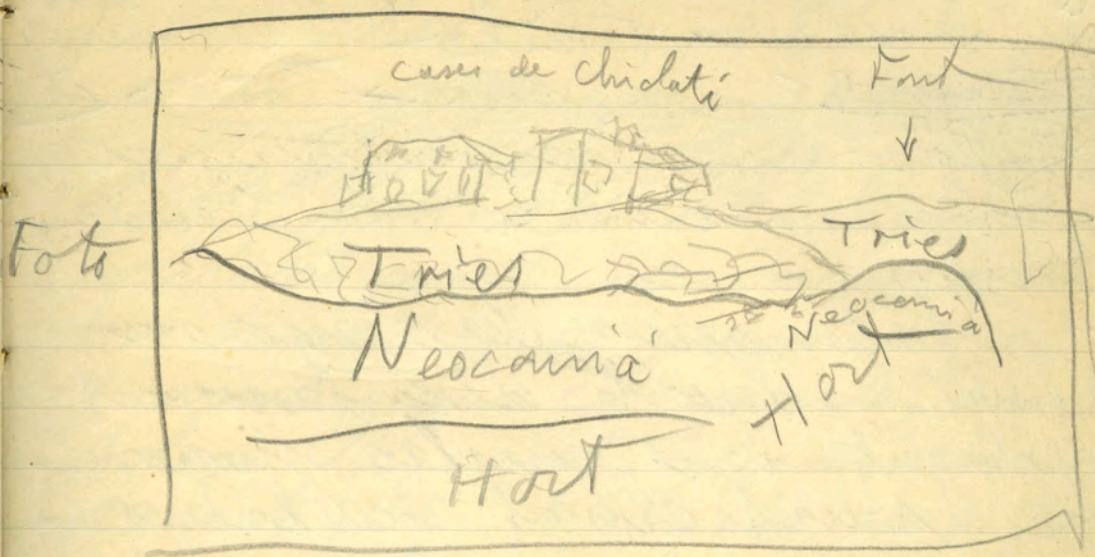 cases de Chidati
Font
Foto
Tries
Tries
Neocomià
Neocomià
Hort
Hort